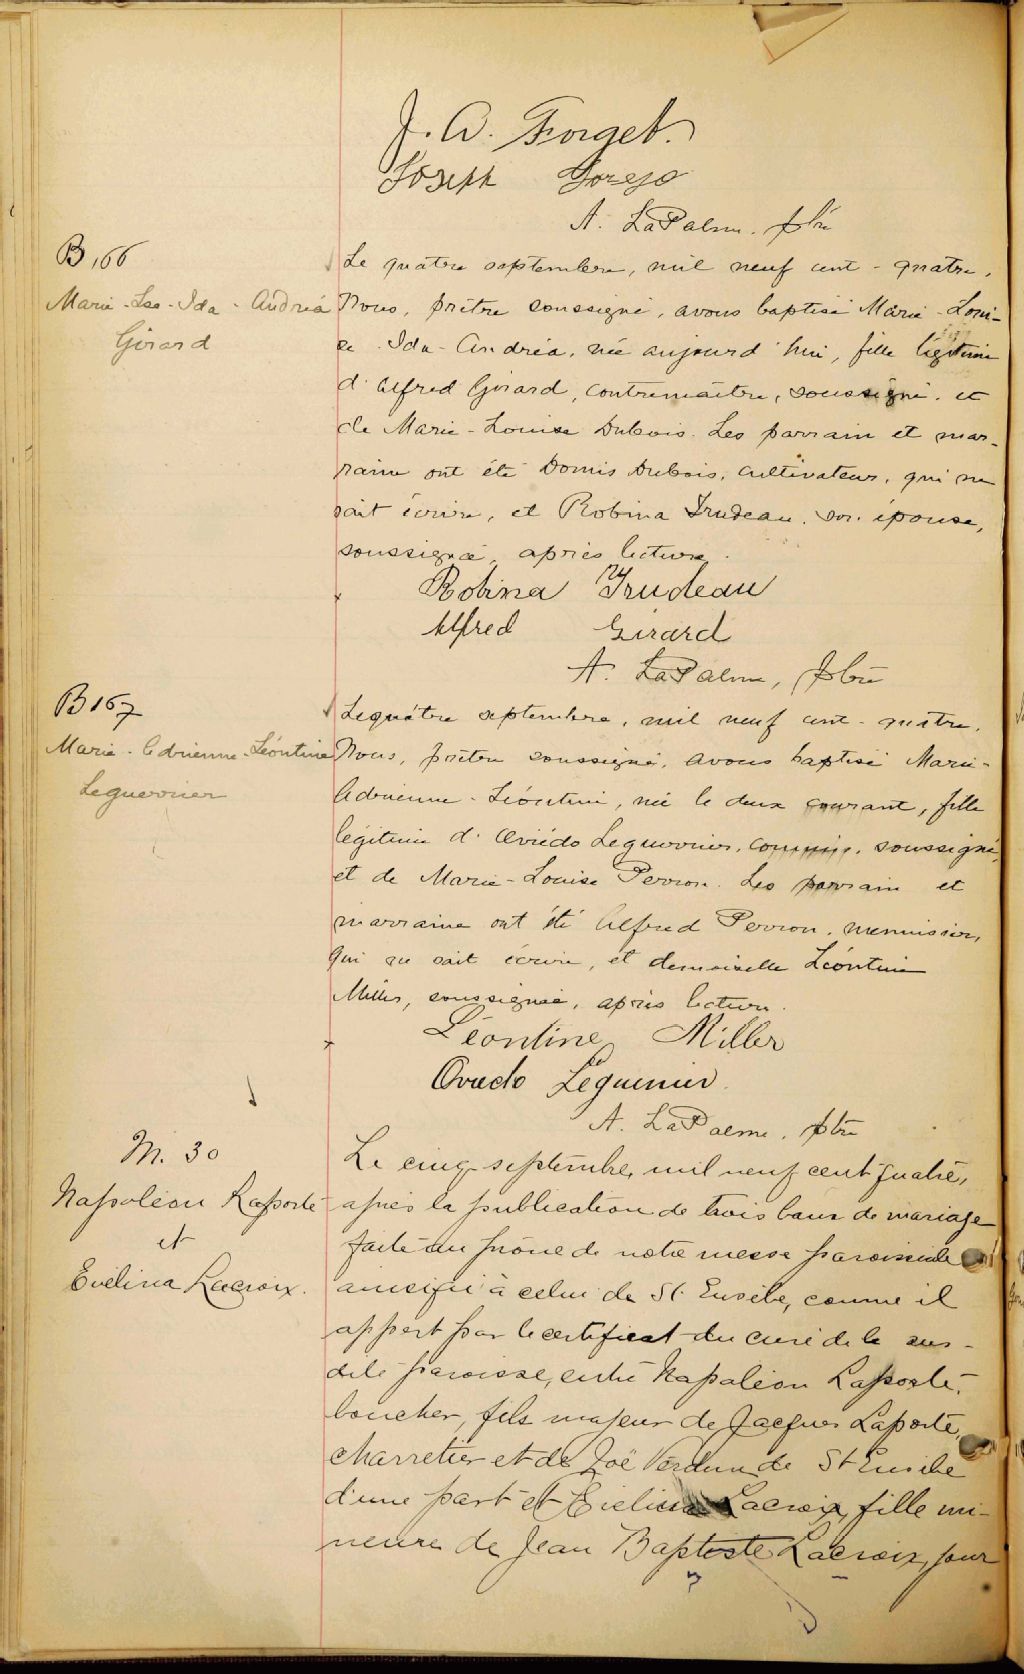 J. A. Forget.
Joseph Forest
A. LaPalme, ptre
B 166
Marie-Lse-Ida-Andréa
Girard
Le quatre septembre, mil neuf cent-quatre,
Nous, prêtre soussigné, avons baptisé Marie-Loui-
se Ida-Andréa, née aujourd'hui, fille légitime
d'Alfred Girard, contremaître, soussigné, et
de Marie-Louise Dubois. Les parrain et mar-
raine ont été Domis Dubois, cultivateur, qui ne
sait écrire, et Robina Trudeau, son épouse,
soussignée, après lecture.
Robina Trudeau
Alfred Girard
A. LaPalme, ptre
B 167
Marie-Adrienne-Léontine
Leguerrier
Le quatre septembre, mil neuf cent-quatre,
Nous, prêtre soussigné, avons baptisé Marie-
Adrienne-Léontine, née le deux courant, fille
légitime d'Oviédo Leguerrier, commis, soussigné,
et de Marie-Louise Perron. Les parrain et
marraine ont été Alfred Perron, menuisier,
qui ne sait écrire, et demoiselle Léontine
Miller, soussignée, après lecture.
Léontine Miller
Oviedo Leguerrier
A. LaPalme, ptre
M. 30
Napoléon Laporte
et
Evélina Lacroix.
Le cinq septembre, mil neuf cent quatre,
après la publication de trois bans de mariage
faite au prône de notre messe paroissiale
ainsi qu'à celui de St. Eusèbe, comme il
appert par le certificat du curé de la sus-
dite paroisse, entre Napoléon Laporte,
boucher, fils majeur de Jacques Laporte,
charretier et de Zoë Verdun de St Eusèbe
d'une part et Evélina Lacroix, fille mi-
neure de Jean Baptiste Lacroix, jour